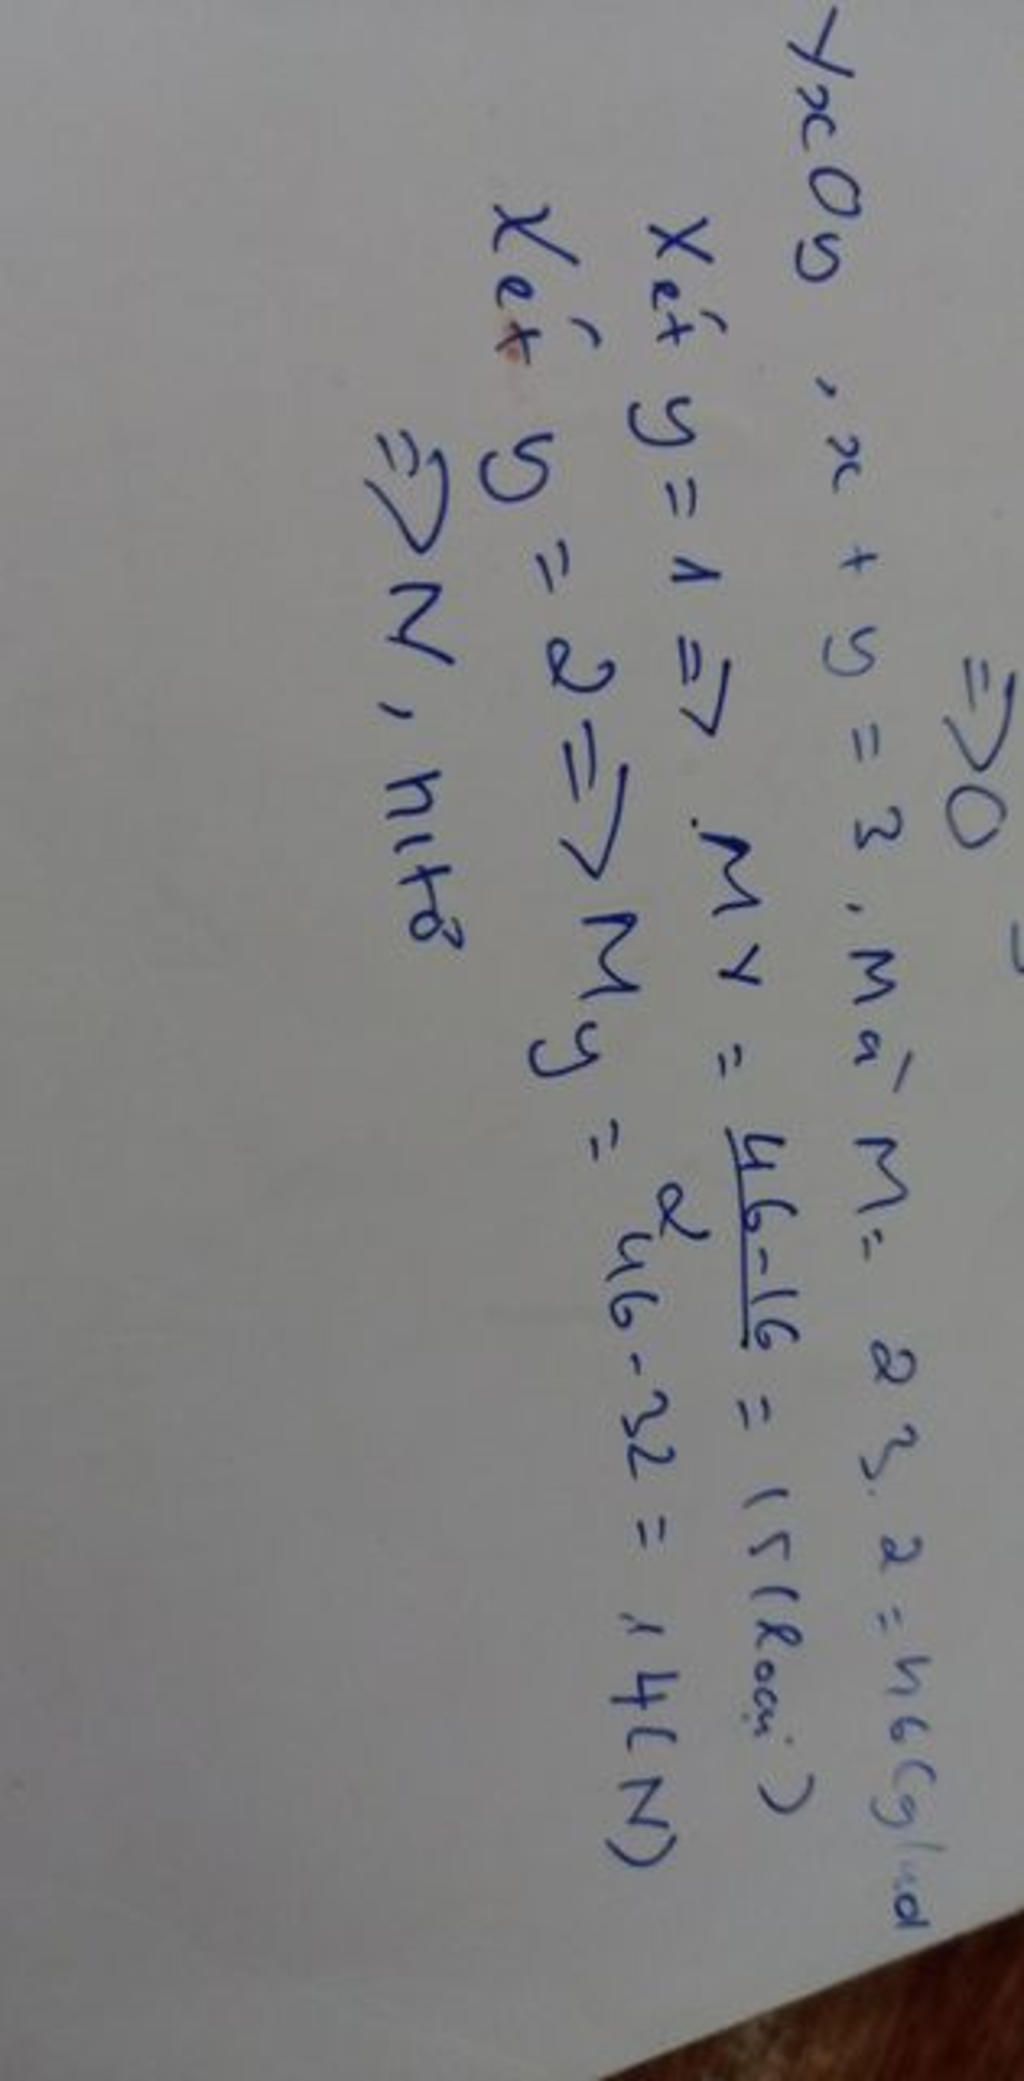 => O
YxOy, x + y = 3. Mà M = 23.2 = 46 (g/mol
Xét y = 1 => MY = 46-16 = 15 (Loại)
2
Xét y = 2 => My = 46-32 = 14 (N)
=> N, nitơ